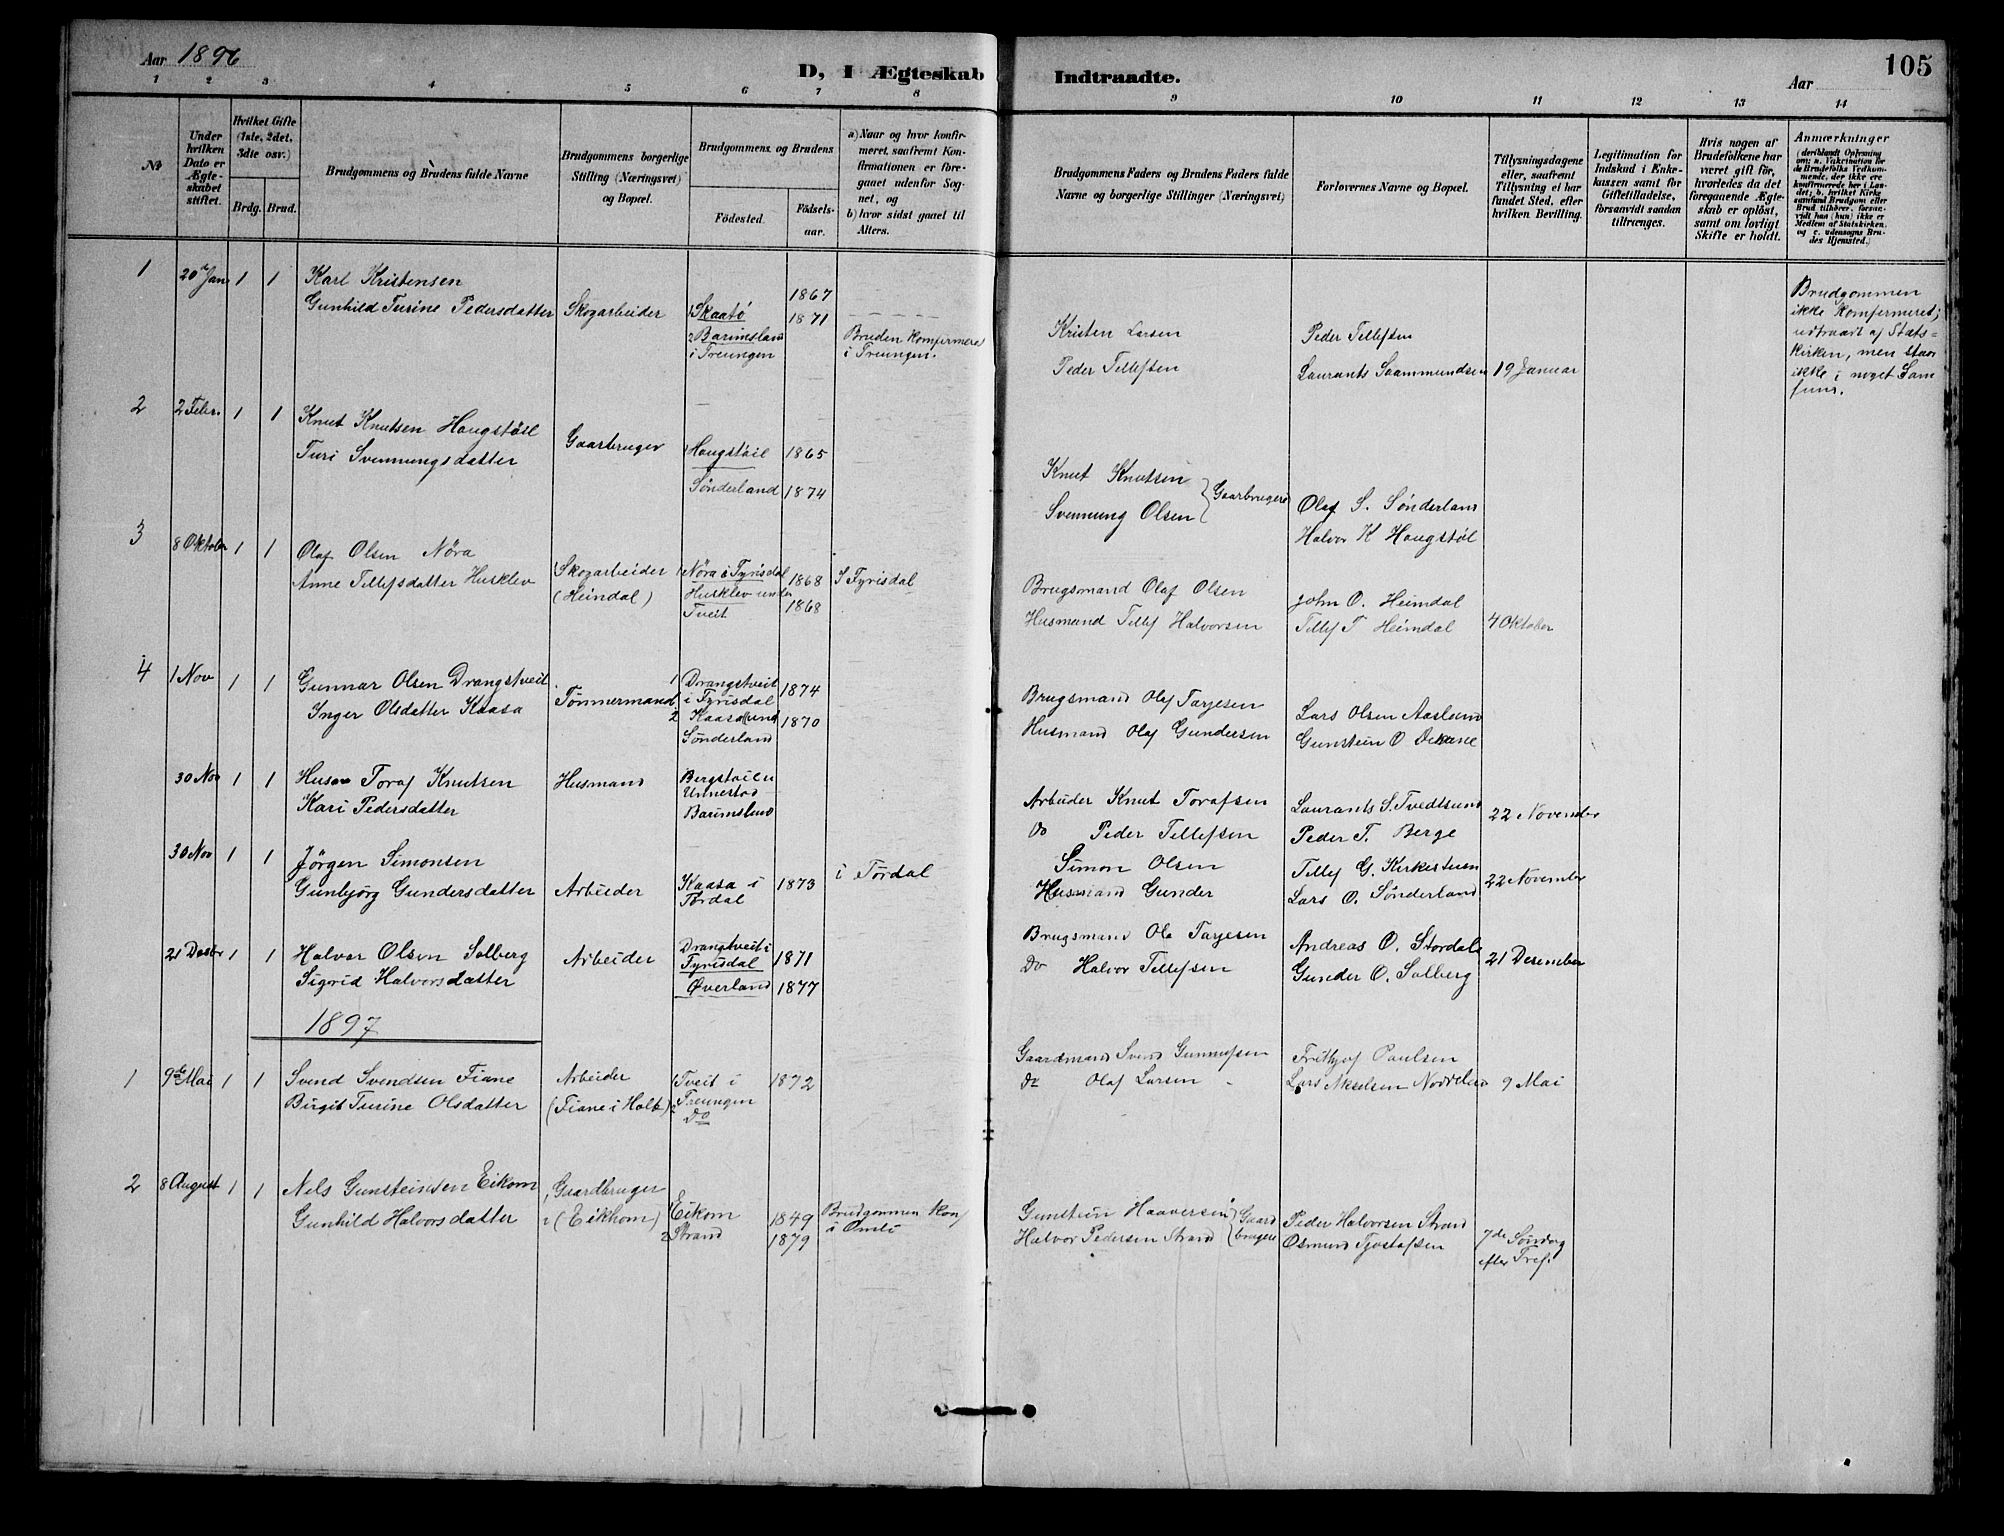 Aar 1896
D, I Ægteskab Indtraadte.
Aar
105
1 2 3 4 5 6 7 8 9 10 11 12 13 14
№
Under hvilken Dato er Ægteskabet stiftet.
Hvilket Gifte (1ste, 2det, 3die osv.)
Brdg. Brud.
Brudgommens og Brudens fulde Navne
Brudgommens borgerlige Stilling (Næringsvei) og Bopæl.
Brudgommens og Brudens
Fødested.
Fødselsaar.
a) Naar og hvor konfirmeret, saafremt Konfirmationen er foregaaet udenfor Sognet, og
b) hvor sidst gaaet til Alters.
Brudgommens Faders og Brudens Faders fulde Navne og borgerlige Stillinger (Næringsvei)
Forlovernes Navne og Bopæl.
Tillysningsdagene eller, saafremt Tillysning ei har fundet Sted, efter hvilken Bevilling.
Legitimation for Indskud i Enkekassen samt for Giftetilladelse, forsaavidt saadan tiltrænges.
Hvis nogen af Brudefolkene har været gift før, hvorledes da det foregaaende Ægteskab er opløst, samt om lovligt Skifte er holdt.
Anmærkninger
(deriblandt Oplysning om: a. Vaksination for de Brudefolks Vedkommende, der ikke ere konfirmerede her i Landet; b. hvilket Kirkesamfund Brudgom eller Brud tilhører, forsaavidt han (hun) ikke er Medlem af Statskirken, og c. udensogns Brudes Hjemsted.)
1 20de Jan 1 1 Karl Kristensen
Gunhild Turine Pedersdatter
Skogarbeider
1 Skaatø 1867
2 Barimsland i Treungen 1871
Bruden Komfirmeret i Treungen.
Kristen Larsen
Peder Tellefsen
Peder Tellefsen
Laurants Saammundsen
19 Januar
Brudgommen
ikke Komfirmeret;
udtraadt af Stats-
kirken, men staar
ikke i noget Sam
fund.
2 2 Febr. 1 1 Knut Knutsen Haugstøil
Turi Svennungsdatter
Gaarbruger
1 Haugstøil 1865
Sønderland 1874
Knut Knutsen
Svennung Olsen
Gaarbrugere
Olaf S. Sønderland
Halvor K Haugstøl
3 8 Oktober 1 1 Olaf Olsen Nöra
Anne Tellefsdatter Husklev
Skogarbeider
(Heindal)
1 Nöra i Fyrisdal 1868
Husklev under Tveit 1868
I Fyrisdal
Brugsmand Olaf Olsen
Husmand Tellef Halvorsen
John O. Heimdal
Tellef T Heimdal
4 Oktober
4 1 Nov 1 1 Gunnar Olsen Drangstveit
Inger Olsdatter Kaasa
Tømmermand
1 Drangstveit i Fyrisdal 1874
2 Kaasa und Sønderland 1870
Brugsmand Olaf Tarjesen
Husmand Olaf Gundersen
Lars Olsen Aasland
Gunstein O
30 Nov 1 1 Toraf Knutsen
Kari Pedersdatter
Husmand
Bergstøil u
Unnestad
Barimsland
Arbeider Knut Torafsen
Do Peder Tellefsen
Laurants S. Tvedtsund
Peder T. Berge
22 November
30 Nov 1 1 Jørgen Simonsen
Gunbjørg Gundersdatter
Arbeider
Kaasa i Tørdal 1873
i Tørdal
Simon Olsen
Husmand Gunder
Tellef G. Kirkestuen
Lars O. Sønderland
22 November
21 Desbr 1 1 Halvor Olsen Solberg
Sigrid Halvorsdatter
Arbeider
Drangtveit i Fyrisdal 1871
Øverland 1877
Brugsmand Ole Tarjesen
Do Halvor Tellefsen
Andreas O. Stordale
Gunder O. Solberg
21 Desember
1897
1 9de Mai 1 1 Svend Svendsen Fiane
Birgit Turine Olsdatter
Arbeider
(Fiane i Holt)
1 Tveit i Treungen 1872
2 Do
Gaardmand Svend Gunnufsen
Do Olaf Larsen
Frithjof Paulsen
Lars Akselsen
9 Mai
2 8 August 1 1 Nels Gunsteinsen Eikom
Gunhild Halvorsdatter
Gaardbruger
(Eikhom)
Eikom 1849
2 Strand 1879
Brudgommen Konf
i Omli
Gunstein Haaversen
Halvor Pedersen Strand
Gaardbrugere
Peder Halvorsen Strand
Osmund Tjostafsen
7de Søndag
efter Tref.